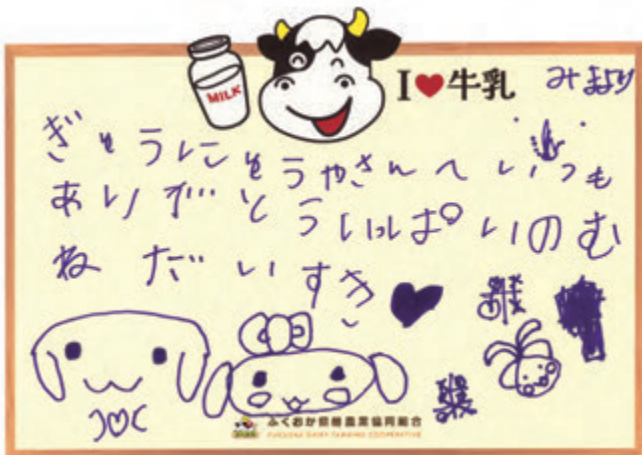 MILK
I♥牛乳
みまより
ぎゅうにゅうやさんへいつも
ありがとういっぱいのむ
ねだいすき
ふくおか県酪農業協同組合
FUKUOKA DAIRY FARMING COOPERATIVE